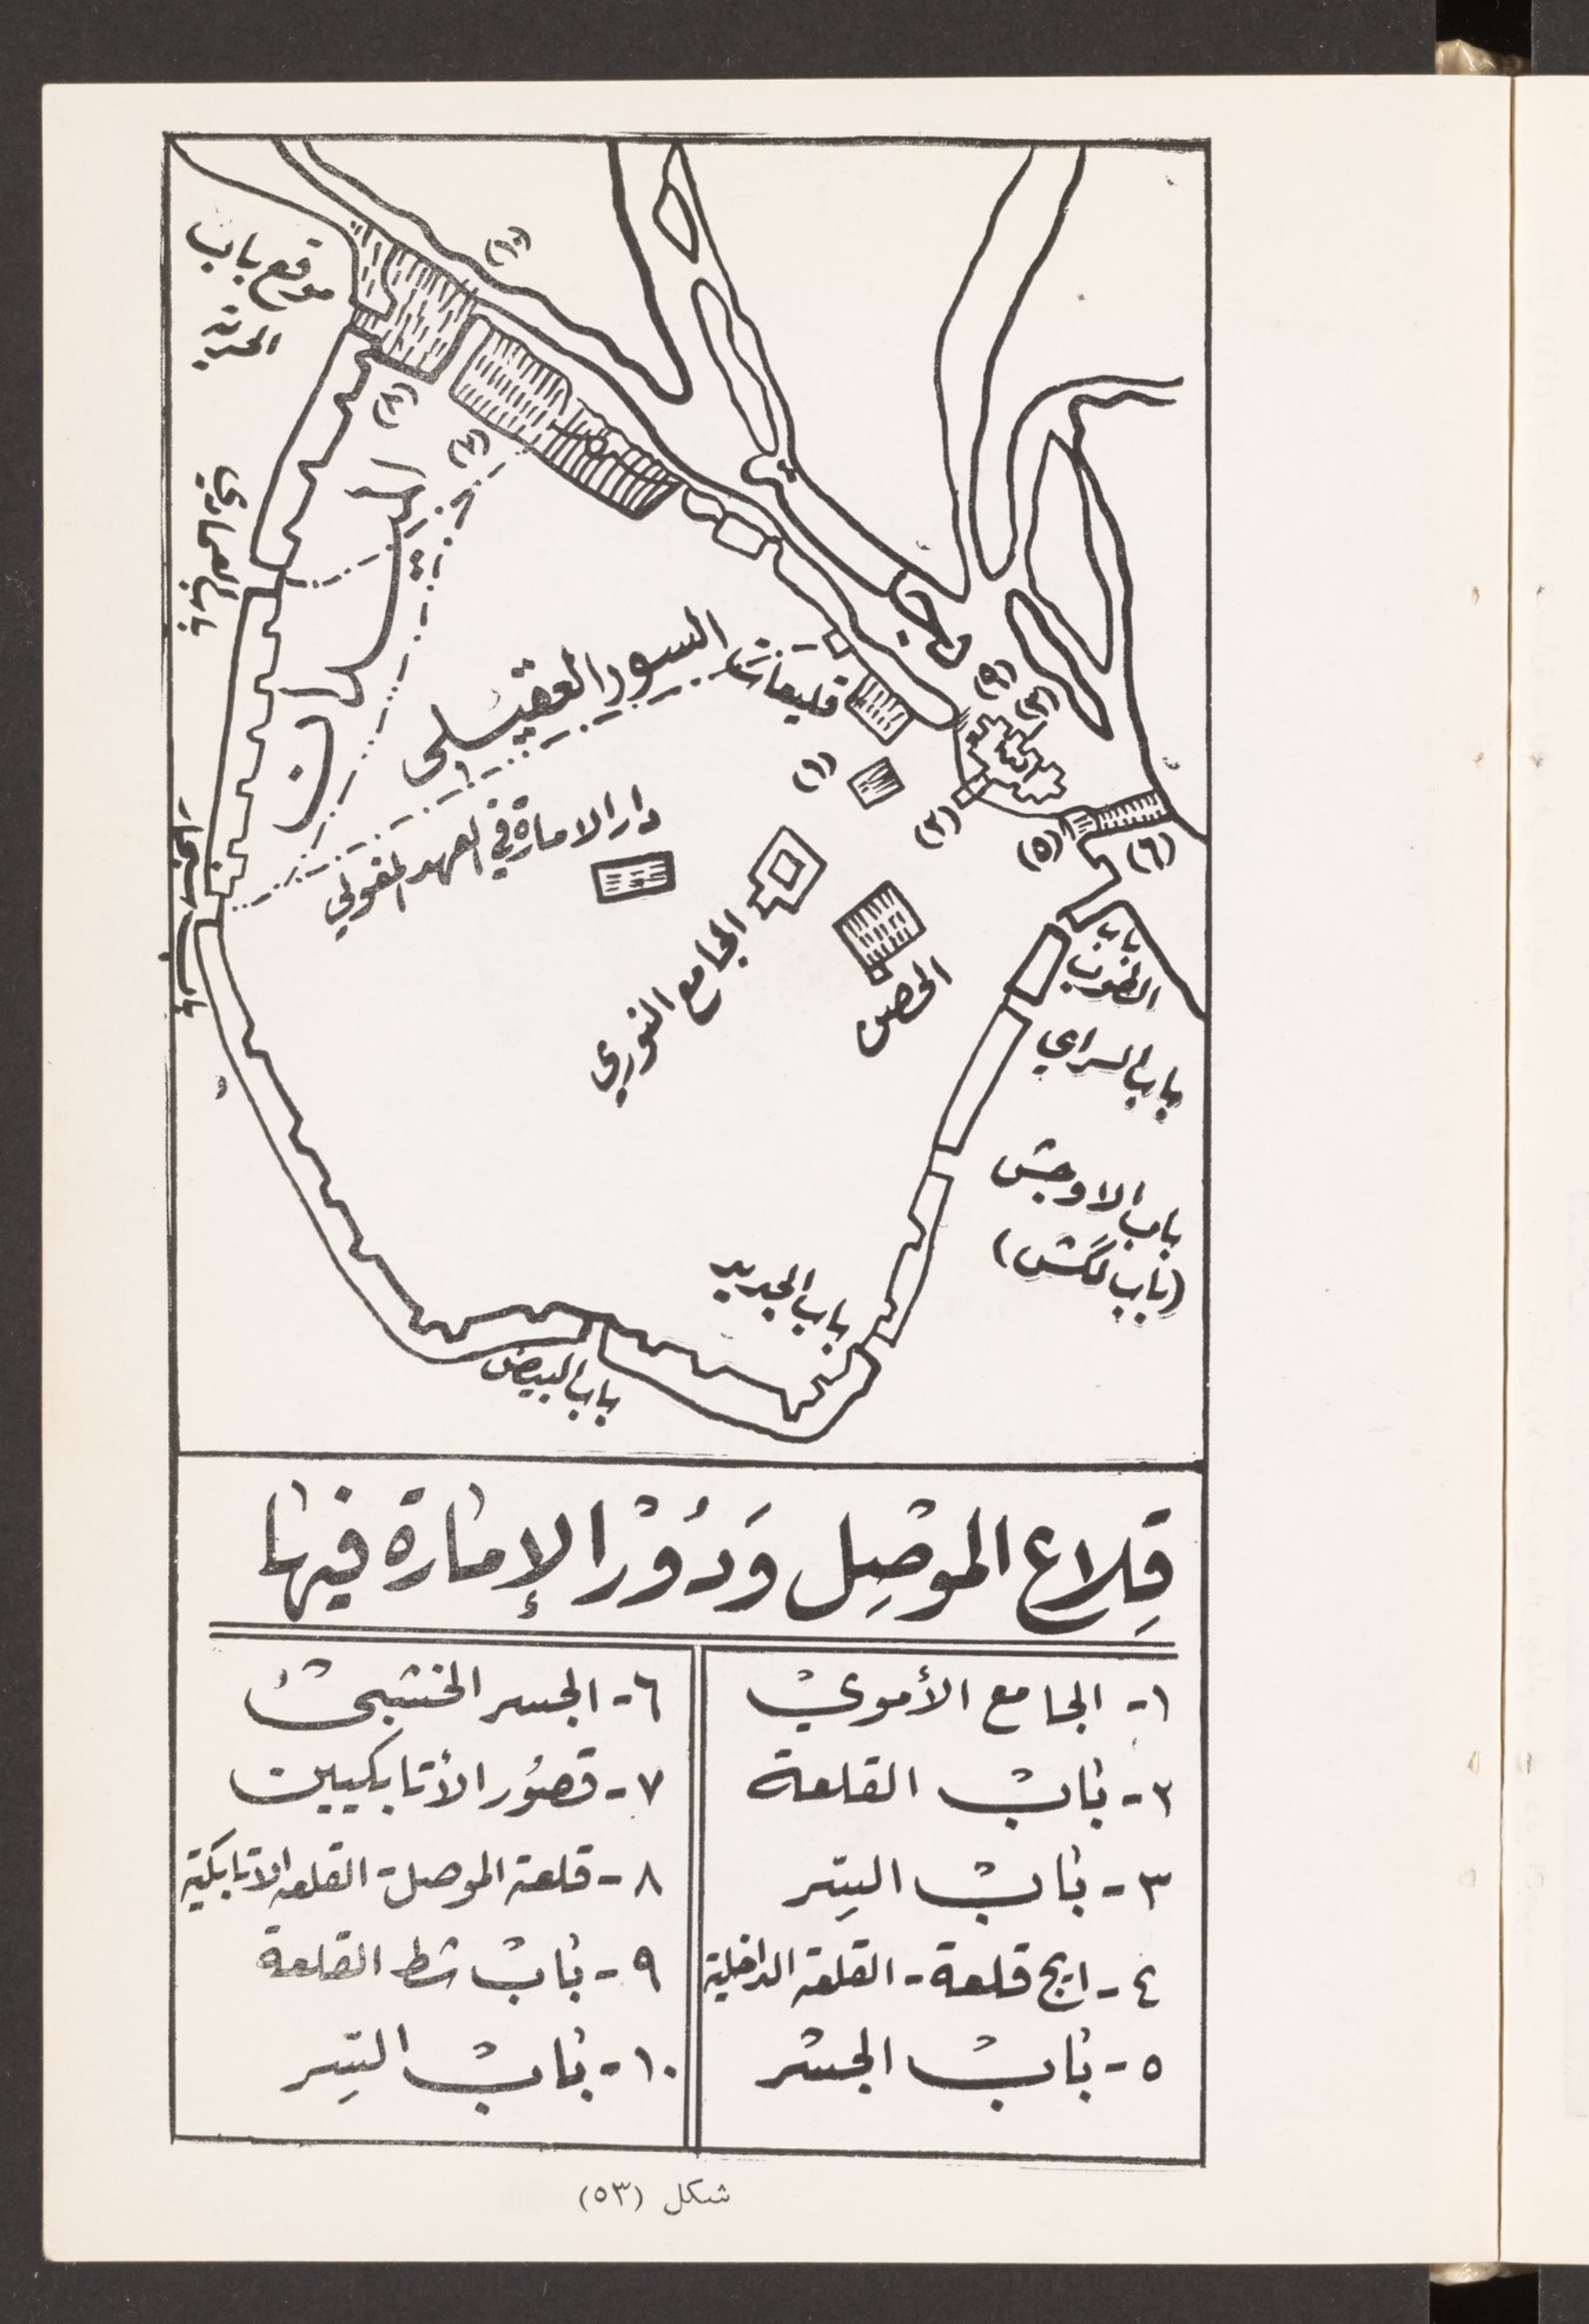 موقع باب
السور العقيلي
قليعات
دار الامارة في العهد المغولي
الجامع النوري
الحصن
الميدان
(١)
(٥)
(٦)
باب
الطوب
باب السراي
باب الاوجش
(باب لگش)
باب الجديد
باب البيض
قِلاع الموصِل وَدُوْر الإمارة فيها
١- الجامع الأموي
٢- باب القلعة
٣- باب السِر
٤- ايج قلعة - القلعة الداخلية
٥- باب الجسر
٦- الجسر الخشبي
٧- قصور الأتابكيين
٨- قلعة الموصل - القلعة الاتابكية
٩- باب شط القلعة
١٠- باب السِر
شكل (٥٣)